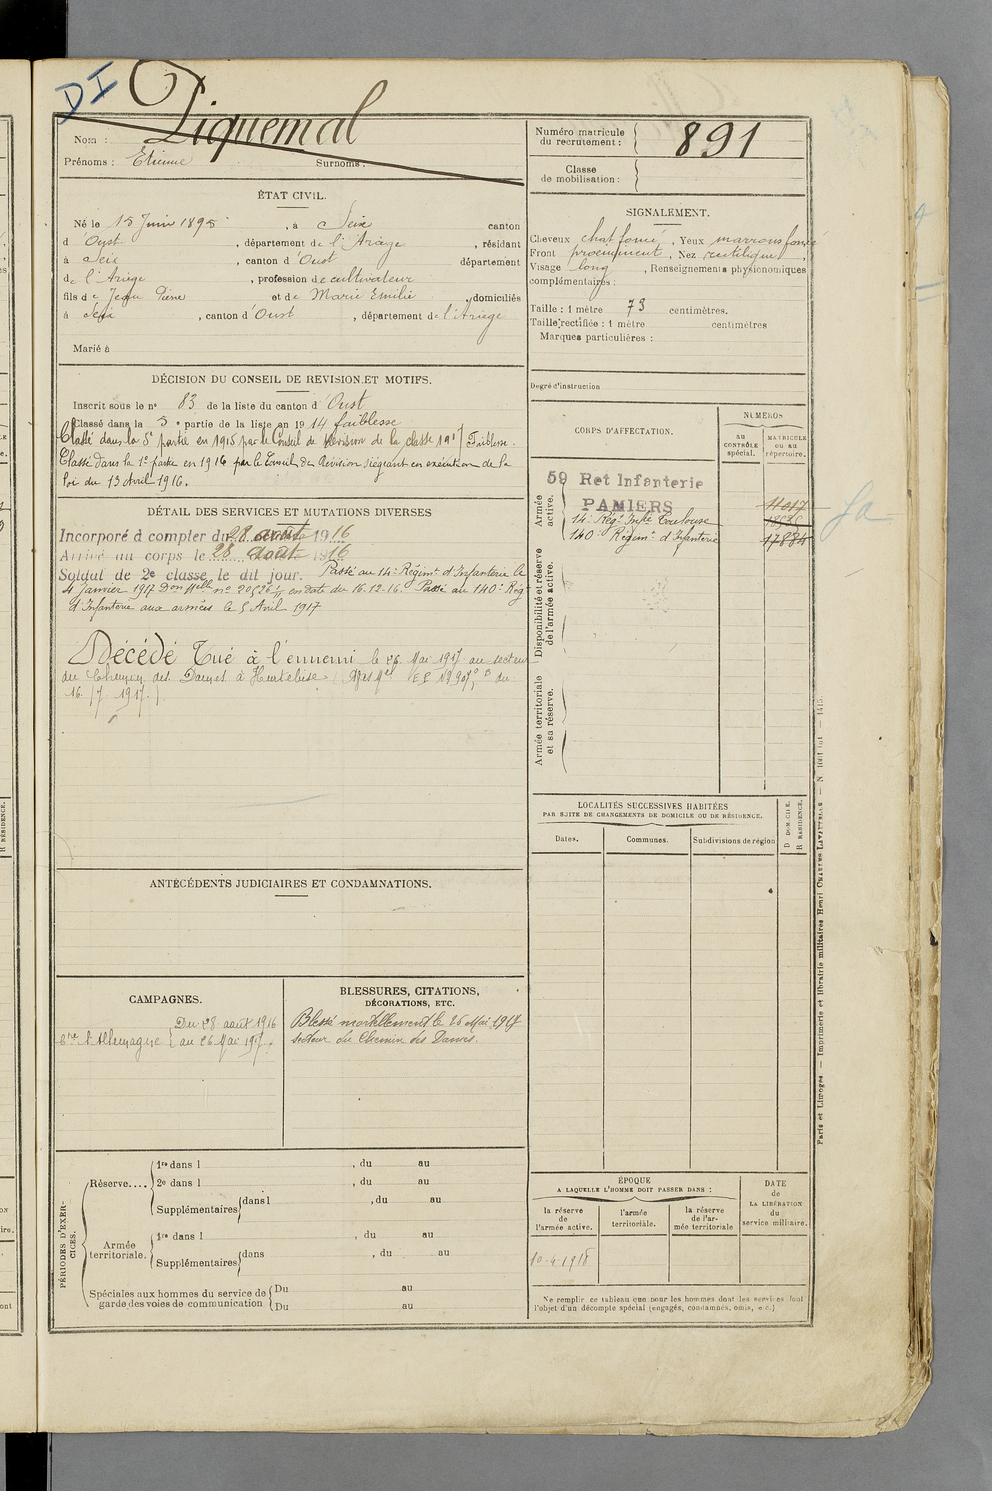 DI
Piquemal
Nom :
Prénoms : Etienne Surnoms :
Numéro matricule
du recrutement : 891
Classe
de mobilisation :
ÉTAT CIVIL.
Né le 15 Juin 1895, à Seix canton
d'Oust, département de l'Ariège, résidant
à Seix, canton d'Oust département
de l'Ariège, profession de cultivateur
fils de Jean Pierre et de Marie Emilie, domiciliés
à Seix, canton d'Oust, département de l'Ariège
Marié à
SIGNALEMENT.
Cheveux chat foncé, Yeux marrons foncé
Front proéminent, Nez rectiligne,
Visage long, Renseignements physionomiques
complémentaires :
Taille : 1 mètre 73 centimètres.
Taille rectifiée : 1 mètre centimètres
Marques particulières :
Degré d'instruction
DÉCISION DU CONSEIL DE REVISION ET MOTIFS.
Inscrit sous le n° 83 de la liste du canton d'Oust
Classé dans la 5e partie de la liste en 1914 faiblesse
Classé dans la 5e partie en 1915 par le Conseil de Révision de la classe 1917 Faiblesse.
Classé dans la 1e partie en 1916 par le Conseil de Révision siégeant en exécution de la
loi du 13 Avril 1916.
DÉTAIL DES SERVICES ET MUTATIONS DIVERSES
Incorporé à compter du 28 août 1916
Arrivé au corps le 28 août 1916
Soldat de 2e classe le dit jour. Passé au 14e Régimt d'Infanterie le
4 Janvier 1917 Don Mlle n° 20526 en date du 16.12.16. Passé au 140e Rég
d'Infanterie aux armées le 5 Avril 1917
Décédé Tué à l'ennemi le 26 Mai 1917 au secteur
du Chemin des Dames à Hurtebise (Avis Mel du
16/7 1917.)
CORPS D'AFFECTATION.
NUMÉROS
AU CONTRÔLE spécial.
MATRICULE OU AU répertoire.
Armée active.
59 Ret Infanterie
PAMIERS 11017
14e Régt Infie Toulouse
140e Régimt d'Infanterie 17834
Disponibilité et réserve de l'armée active.
Armée territoriale et sa réserve.
LOCALITÉS SUCCESSIVES HABITÉES
PAR SUITE DE CHANGEMENTS DE DOMICILE OU DE RÉSIDENCE.
Dates. Communes. Subdivisions de région
D DOMICILE. R RÉSIDENCE.
ANTÉCÉDENTS JUDICIAIRES ET CONDAMNATIONS.
CAMPAGNES.
Du 28 août 1916
Ctre l'Allemagne au 26 Mai 1917.
BLESSURES, CITATIONS,
DÉCORATIONS, ETC.
Blessé mortellement le 26 Mai 1917
secteur du Chemin des Dames.
PÉRIODES D'EXERCICES.
Réserve....
1re dans l , du au
2e dans l , du au
Supplémentaires dans l , du au
Armée territoriale.
1re dans l , du au
Supplémentaires dans , du au
Spéciales aux hommes du service de
garde des voies de communication
Du au
Du au
ÉPOQUE
A LAQUELLE L'HOMME DOIT PASSER DANS :
la réserve de l'armée active.
l'armée territoriale.
la réserve de l'armée territoriale
DATE de LA LIBÉRATION du service militaire.
10-4-1918
Ne remplir ce tableau que pour les hommes dont les services font
l'objet d'un décompte spécial (engagés, condamnés, omis, etc.)
Paris et Limoges — Imprimerie et librairie militaires Henri CHARLES-LAVAUZELLE